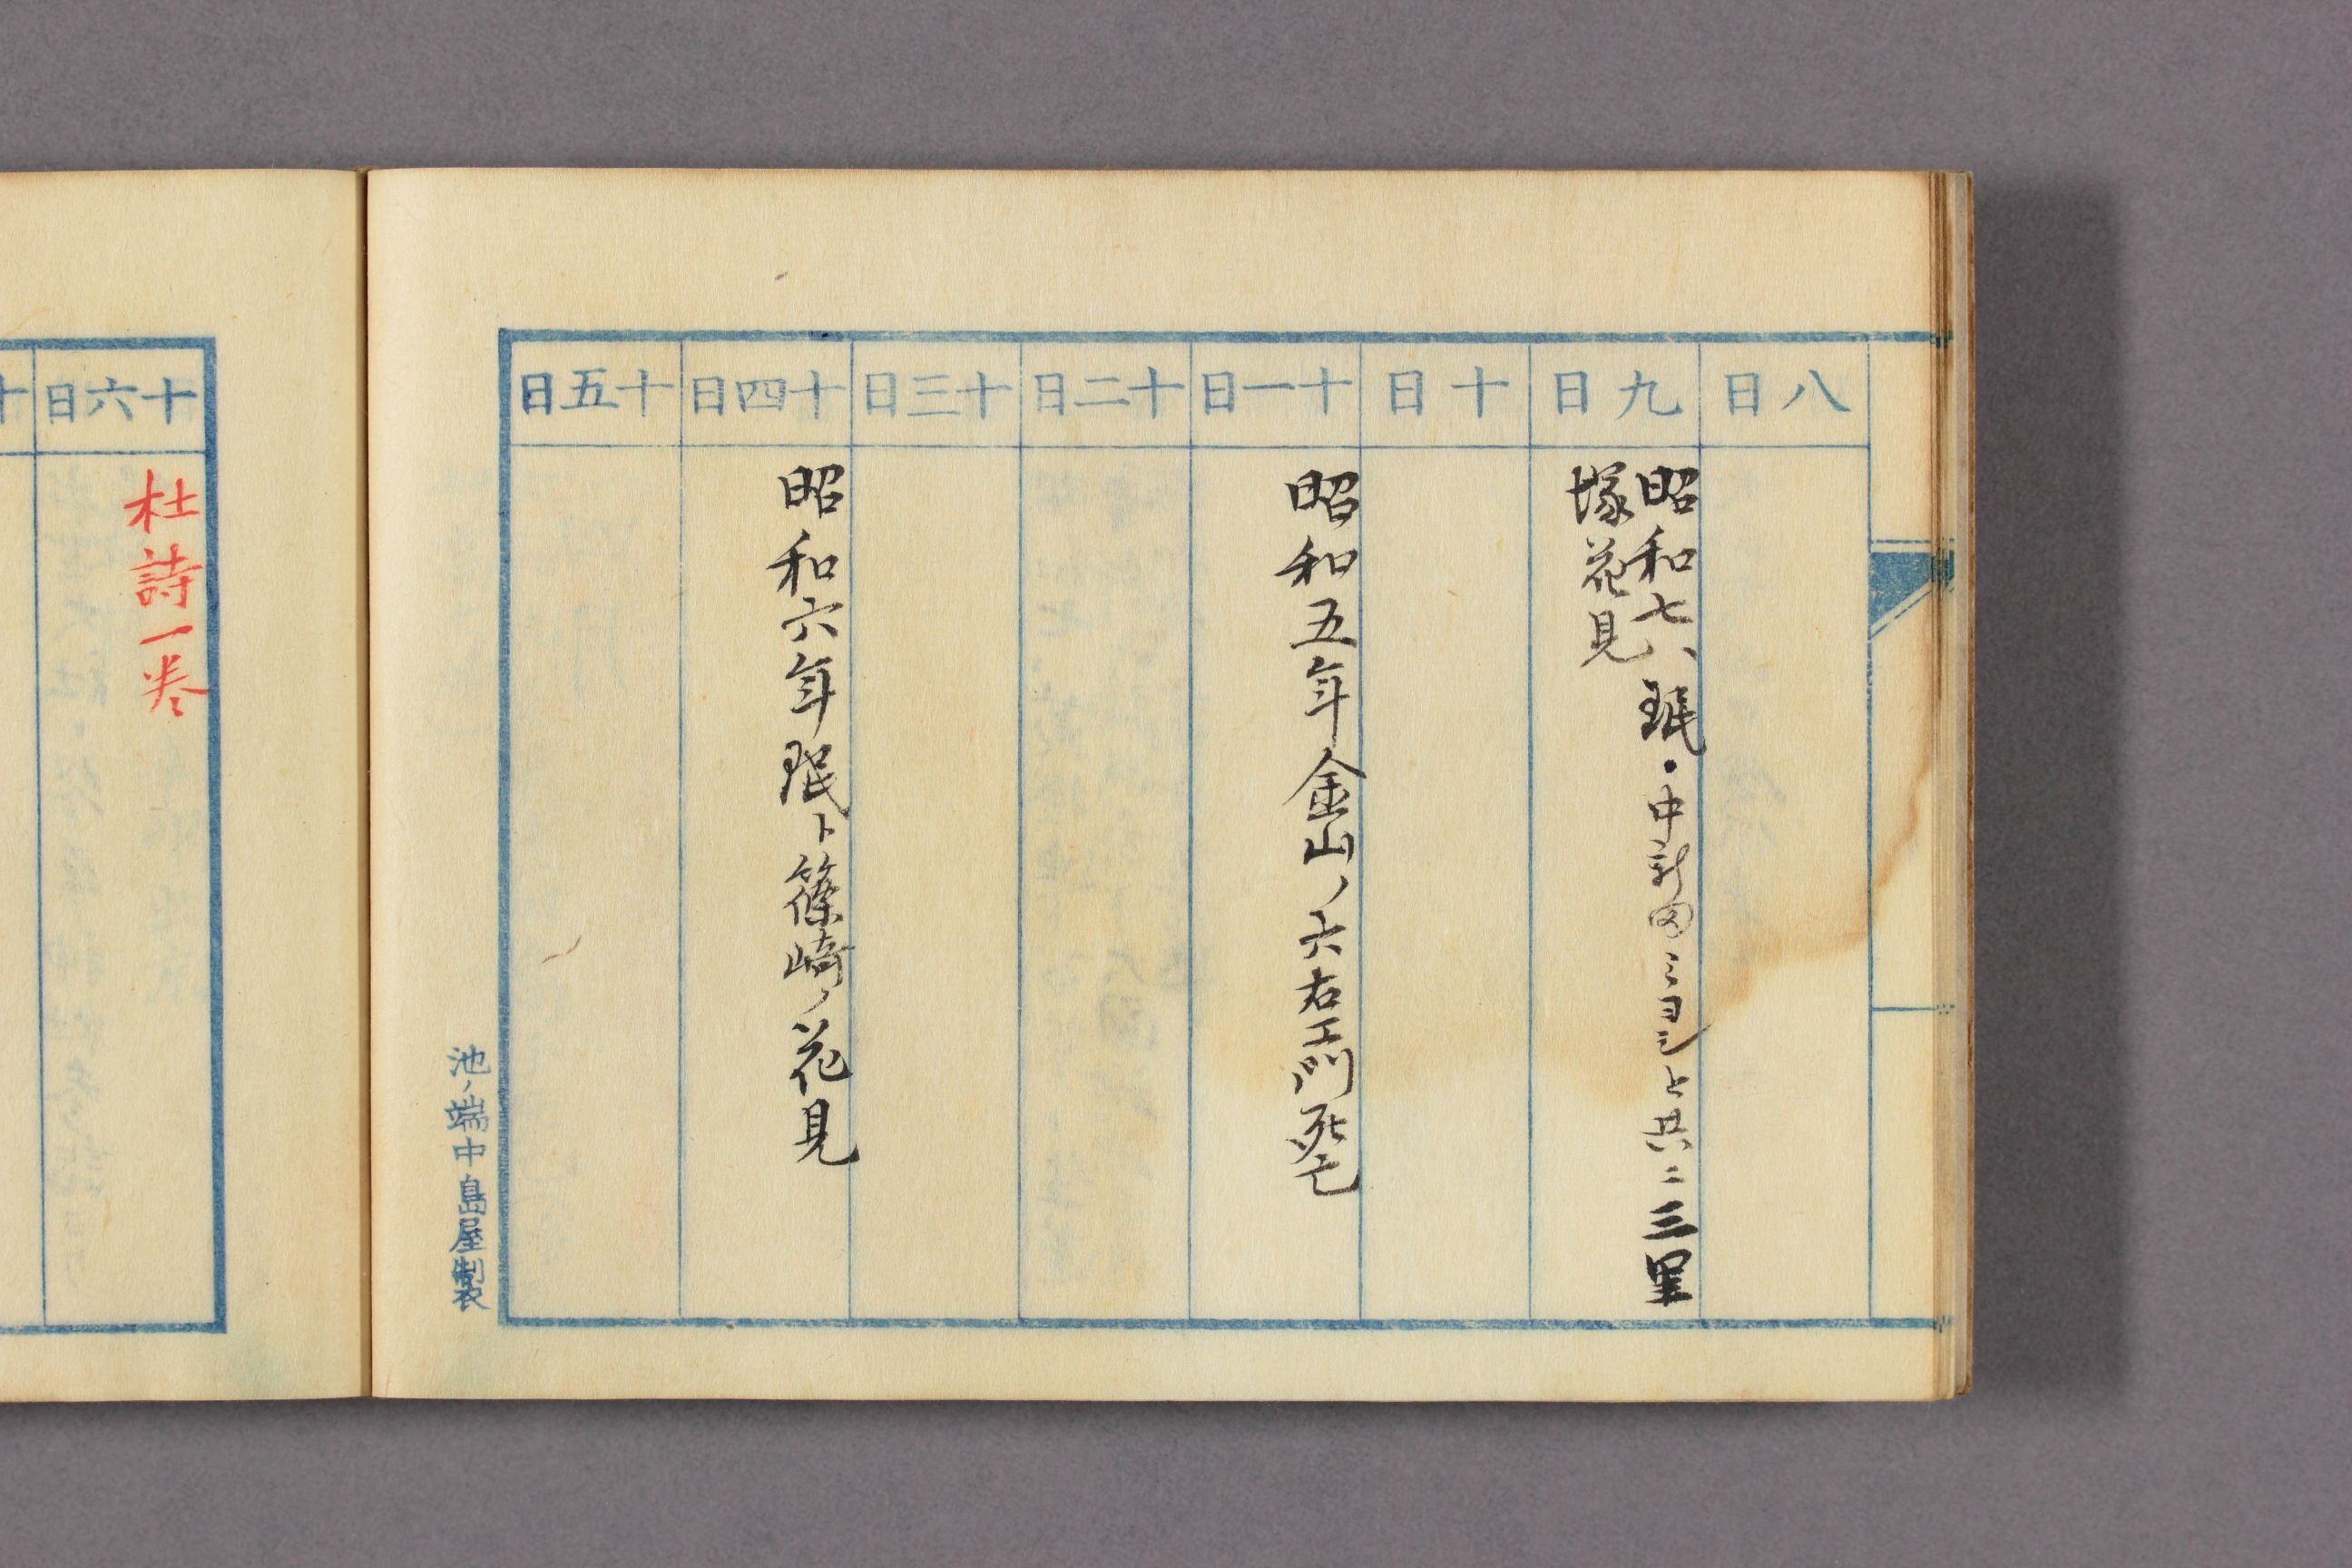 八日
九日
昭和七八、珉・中新田ミヨシと共ニ三里
塚花見
十日
十一日
昭和五年金山ノ六右エ門死亡
十二日
十三日
十四日
昭和六年珉ト篠崎ノ花見
十五日
池ノ端中島屋製
十六日
杜詩一巻
十